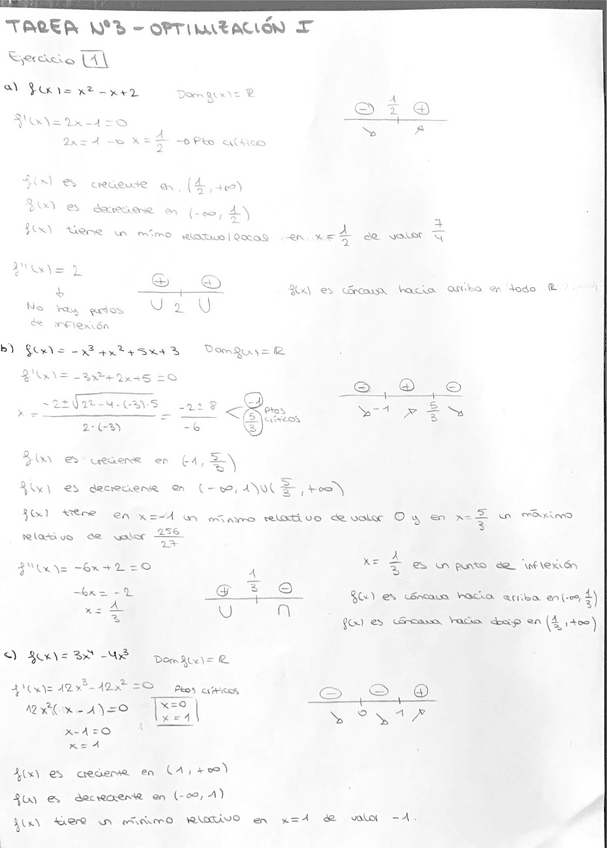 TAREA Nº3 - OPTIMIZACIÓN I
Ejercicio 1
a) f(x) = x² - x + 2   Dom f(x) = ℝ
⊖ 1/2 ⊕
f'(x) = 2x - 1 = 0
2x = 1 → x = 1/2 → Pto crítico
f(x) es creciente en (1/2, +∞)
f(x) es decreciene en (-∞, 1/2)
f(x) tiene un mímo relativo/local en x = 1/2 de valor 7/4
f''(x) = 2
⊕ ⊕
∪ 2 ∪
f(x) es cóncava hacia arriba en todo ℝ
↓
No hay puntos
de inflexión
b) f(x) = -x³ + x² + 5x + 3   Dom f(x) = ℝ
f'(x) = -3x² + 2x + 5 = 0
⊖ ⊕ ⊖
↘ -1 ↗ 5/3 ↘
x = (-2 ± √(2² - 4·(-3)·5)) / (2·(-3)) = (-2 ± 8) / -6 < -1, 5/3 Ptos críticos
f(x) es creciente en (-1, 5/3)
f(x) es decreciente en (-∞, 1) ∪ (5/3, +∞)
f(x) tiene en x = -1 un mínimo relativo de valor 0 y en x = 5/3 un máximo
relativo de valor 256/27
f''(x) = -6x + 2 = 0
-6x = -2
x = 1/3
⊕ 1/3 ⊖
∪ ∩
x = 1/3 es un punto de inflexión
f(x) es cóncava hacia arriba en (-∞, 1/3)
f(x) es cóncava hacia abajo en (1/3, +∞)
c) f(x) = 3x⁴ - 4x³   Dom f(x) = ℝ
f'(x) = 12x³ - 12x² = 0   Ptos críticos
12x²(x - 1) = 0   x = 0
x = 1
x - 1 = 0
x = 1
⊖ ⊖ ⊕
↘ 0 ↘ 1 ↗
f(x) es creciente en (1, +∞)
f(x) es decreciente en (-∞, 1)
f(x) tiene un mínimo relativo en x = 1 de valor -1.